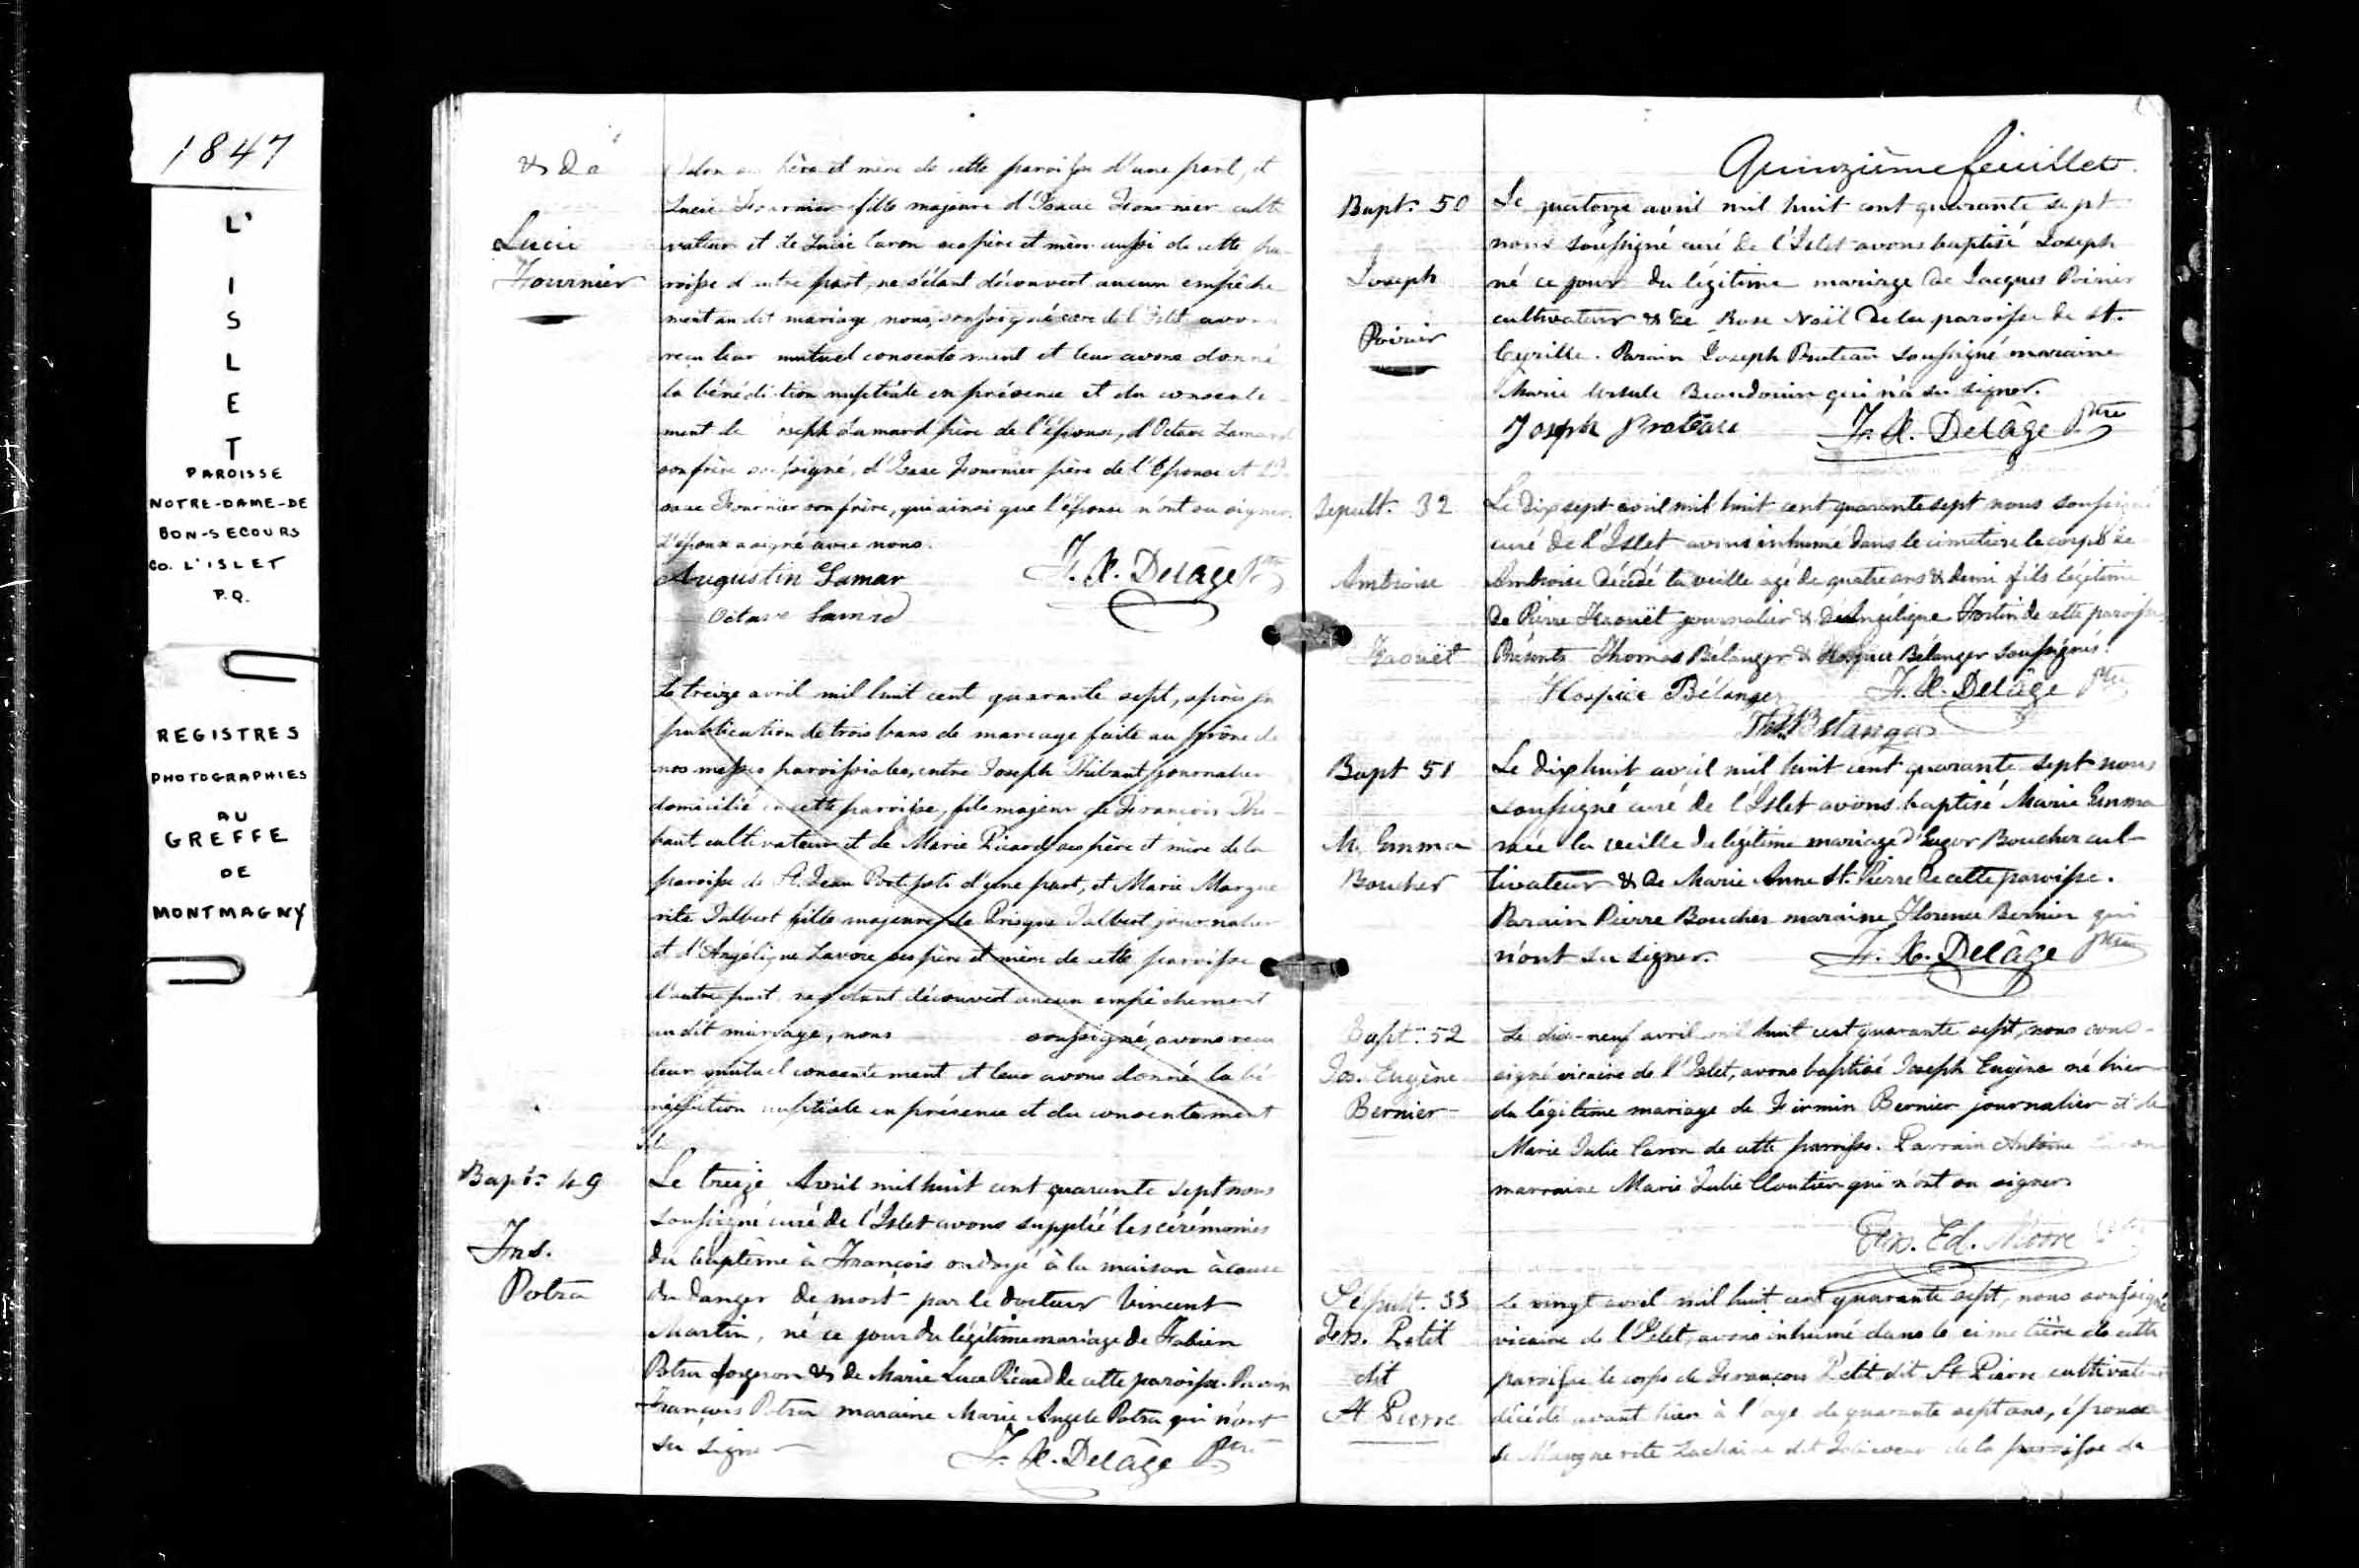 1847
L'
I
S
L
E
T
PAROISSE
NOTRE-DAME-DE
BON-SECOURS
Co. L'ISLET
P.Q.
REGISTRES
PHOTOGRAPHIES
AU
GREFFE
DE
MONTMAGNY
& De
Lucie
Fournier
père et mère de cette paroisse d'une part, et
Lucie Fournier fille majeure d'Isaac Fournier culti
vateur et de Lucie Caron ses père et mère aussi de cette pa-
roisse d'autre part, ne s'étant découvert aucun empêche
ment au dit mariage, nous, soussigné curé de l'Islet avons
reçu leur mutuel consentement et leur avons donné
la bénédiction nuptiale en présence et du consente-
ment de Joseph Lamard père de l'époux, d'Octave Lamard
son frère soussigné, d'Isaac Fournier père de l'Epouse et d'I-
saac Fournier son frère, qui ainsi que l'épouse n'ont su signer.
L'époux a signé avec nous.
Augustin Lamar F. X. Delâge Ptre
Octave Lamard
Le treize avril mil huit cent quarante sept, après la
publication de trois bans de mariage faite au prône de
nos messes paroissiales, entre Joseph Thibaut journalier
domicilié en cette paroisse, fils majeur de François Thi-
baut cultivateur et de Marie Picard ses père et mère de la
paroisse de St. Jean Port-Joli d'une part, et Marie Margue
rite Talbert fille majeure de Prisque Talbert journalier
et d'Angélique Lavoie ses père et mère de cette paroisse
d'autre part, ne s'étant découvert aucun empêchement
au dit mariage, nous soussigné, avons reçu
leur mutuel consentement et leur avons donné la bé
nédiction nuptiale en présence et du consentement
de
Bapt: 49
Frs.
Potra
Le treize Avril mil huit cent quarante sept nous
soussigné curé de l'Islet avons suppléé les cérémonies
du baptême à François ondoyé à la maison à cause
du danger de mort par le docteur Vincent
Martin, né ce jour du légitime mariage de Fabien
Potra forgeron & de Marie Luce Picard de cette paroisse. Parain
François Potra maraine Marie Angele Potra qui n'ont
su signer F. X. Delâge Ptre
Quinzième feuillet.
Bapt. 50
Joseph
Poirier
Le quatorze avril mil huit cent quarante sept
nous soussigné curé de l'Islet avons baptisé Joseph
né ce jour du légitime mariage de Jacques Poirier
cultivateur & de Rose Noël de la paroisse de St.
Cyrille. Parain Joseph Pruteau soussigné maraine
Marie Ursule Beaudouin qui n'a su signer.
Joseph Proteau F. X. Delâge Ptre
Sepult. 32
Ambroise
Fraouët
Le dix sept avril mil huit cent quarante sept nous soussigné
curé de l'Islet avons inhumé dans le cimetière le corps de
Ambroise décédé la veille agé de quatre ans & demi fils légitime
de Pierre Fraouët journalier & de Angélique Fortin de cette paroisse
Présents Thomas Bélanger & Hospice Bélanger soussignés.
Hospice Bélanger F. X. Delâge Ptre
Ths. Bélanger
Bapt 51
M. Emma
Boucher
Le dix huit avril mil huit cent quarante sept nous
soussigné curé de l'Islet avons baptisé Marie Emma
née la veille du légitime mariage d'Eugor Boucher cul-
tivateur & de Marie Anne St. Pierre de cette paroisse.
Parain Pierre Boucher maraine Florence Bernier qui
n'ont su signer. F. X. Delâge Ptre
Bapt: 52
Jos. Eugène
Bernier
Le dix-neuf avril mil huit cent quarante sept, nous sous-
signé vicaire de l'Islet, avons baptisé Joseph Eugène né hier
du légitime mariage de Firmin Bernier journalier et de
Marie Julie Caron de cette paroisse. Parrain Antoine Caron
marraine Marie Julie Cloutier qui n'ont su signer
Ed. Moore Ptre
Sépult. 33
Frs. Petit
dit
St Pierre
Le vingt avril mil huit cent quarante sept, nous soussigné
vicaire de l'Islet, avons inhumé dans le cimetière de cette
paroisse le corps de François Petit dit St Pierre cultivateur
décédé avant hier à l'age de quarante sept ans, époux
de Marguerite Lachaine dit Jolicoeur de la paroisse de